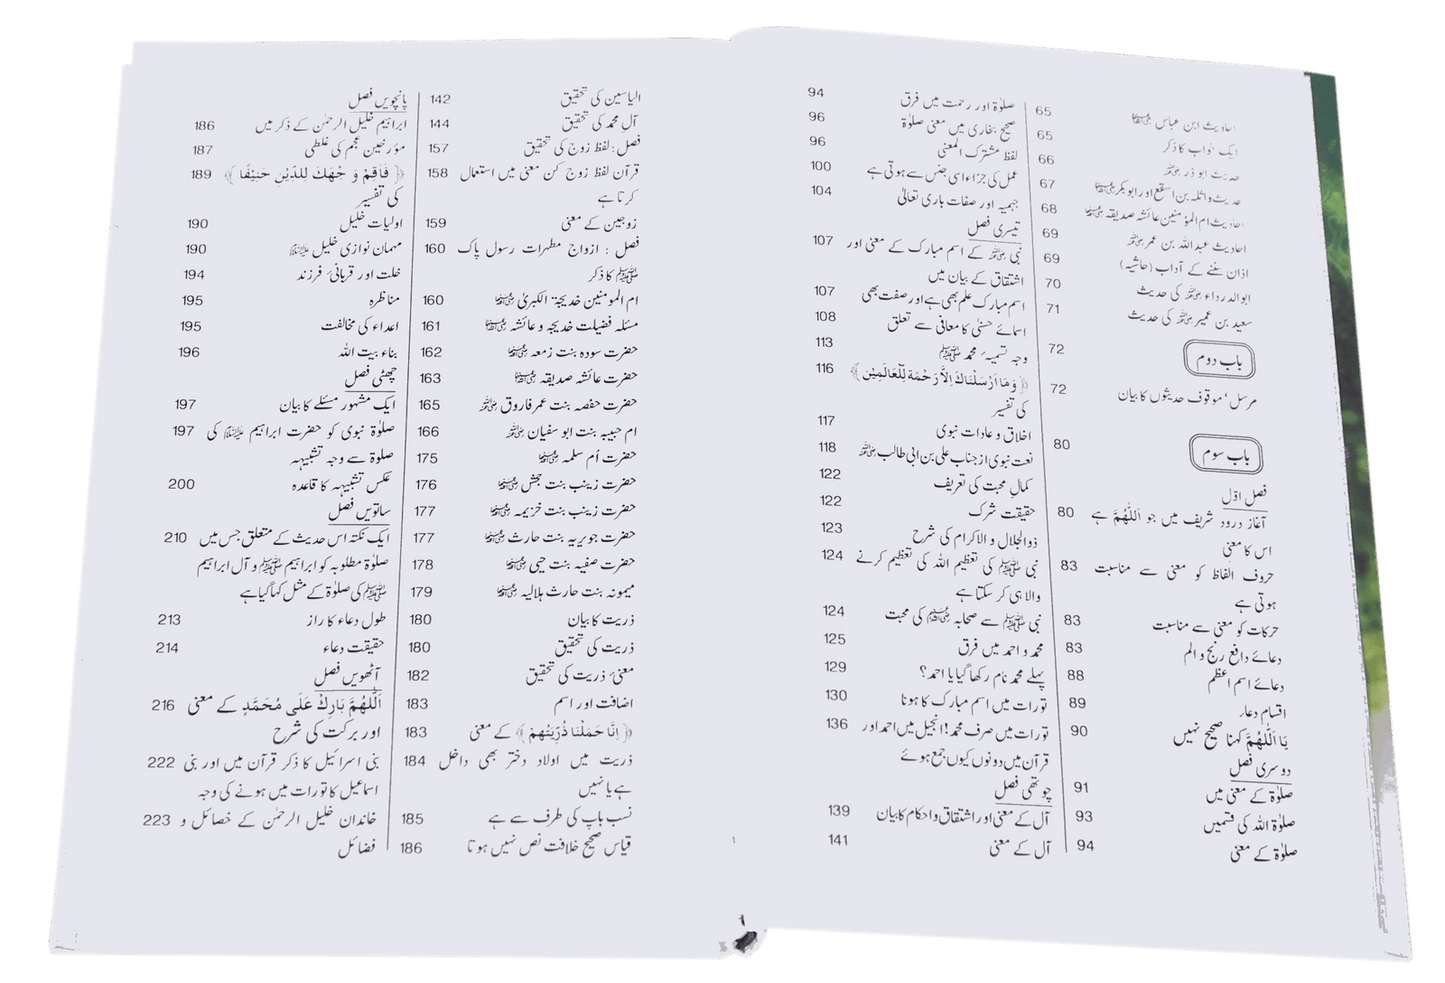 احادیث ابن عباس ﷺ 65
ایک خواب کا ذکر 65
حدیث ابو ذر 66
حدیث واثلہ بن اسقع اور ابو بکر 67
احادیث ام المومنین عائشہ صدیقہ 68
احادیث عبداللہ بن عمر 69
اذان سننے کے آداب (حاشیہ) 69
ابوالدرداء کی حدیث 70
سعید بن عمیر کی حدیث 71
باب دوم 72
مرسل، موقوف حدیثوں کا بیان 72
باب سوم 80
فصل اوّل
آغاز درود شریف میں جو اَللّٰهُمَّ ہے 80
اس کا معنی
حروف الفاظ کو معنی سے مناسبت 83
ہوتی ہے
حرکات کو معنی سے مناسبت 83
دعائے دافع رنج و الم 83
دعائے اسم اعظم 88
اقسام دعاء 89
یَا اَللّٰهُمَّ کہنا صحیح نہیں 90
دوسری فصل
صلوٰۃ کے معنی میں 91
صلوٰۃ اللہ کی قسمیں 93
صلوٰۃ کے معنی 94
صلوٰۃ اور رحمت میں فرق 94
صحیح بخاری میں معنی صلوٰۃ 96
لفظ مشترک المعنی 96
عمل کی جزاء اسی جنس سے ہوتی ہے 100
جہمیہ اور صفات باری تعالیٰ 104
تیسری فصل
نبی ﷺ کے اسم مبارک کے معنی اور 107
اشتقاق کے بیان میں
اسم مبارک علم بھی ہے اور صفت بھی 107
اسمائے حسنیٰ کا معانی سے تعلق 108
وجہ تسمیہ محمد ﷺ 113
﴿وَمَا اَرْسَلْنَاكَ اِلَّا رَحْمَةً لِّلْعَالَمِيْن﴾ 116
کی تفسیر
اخلاق و عادات نبوی 117
نعت نبوی از جناب علی بن ابی طالب 118
کمال محبت کی تعریف 122
حقیقت شرک 122
ذوالجلال والاکرام کی شرح 123
نبی ﷺ کی تعظیم اللہ کی تعظیم کرنے 124
والا ہی کر سکتا ہے
نبی ﷺ سے صحابہ کی محبت 124
محمد و احمد میں فرق 125
پہلے محمد نام رکھا گیا یا احمد؟ 129
تورات میں اسم مبارک کا ہونا 130
تورات میں صرف محمد! انجیل میں احمد اور 136
قرآن میں دونوں کیوں جمع ہوئے
چوتھی فصل
آل کے معنی اور اشتقاق و احکام کا بیان 139
آل کے معنی 141
الیاسین کی تحقیق 142
آل محمد کی تحقیق 144
فصل: لفظ زوج کی تحقیق 157
قرآن لفظ زوج کن معنی میں استعمال 158
کرتا ہے
زوجین کے معنی 159
فصل : ازواج مطہرات رسول پاک 160
ﷺ کا ذکر
ام المومنین خدیجۃ الکبریٰ 160
مسئلہ فضیلت خدیجہ و عائشہ 161
حضرت سودہ بنت زمعہ 162
حضرت عائشہ صدیقہ 163
حضرت حفصہ بنت عمر فاروق 165
ام حبیبہ بنت ابو سفیان 166
حضرت اُم سلمہ 175
حضرت زینب بنت جحش 176
حضرت زینب بنت خزیمہ 177
حضرت جویریہ بنت حارث 177
حضرت صفیہ بنت حیی 178
میمونہ بنت حارث ہلالیہ 179
ذریت کا بیان 180
ذریت کی تحقیق 180
معنیٰ ذریت کی تحقیق 182
اضافت اور اسم 183
﴿ اِنَّا حَمَلْنَا ذُرِّيَّتَهُمْ ﴾ کے معنی 183
ذریت میں اولاد دختر بھی داخل 184
ہے یا نہیں
نسب باپ کی طرف سے ہے 185
قیاس صحیح خلافت نص نہیں ہوتا 186
پانچویں فصل
ابراہیم خلیل الرحمٰن کے ذکر میں 186
مؤرخین عجم کی غلطی 187
﴿ فَاَقِمْ وَ جْهَكَ لِلدِّيْنِ حَنِيْفًا ﴾ 189
کی تفسیر
اولیات خلیل 190
مہمان نوازی خلیل 190
خلت اور قربانی فرزند 194
مناظرہ 195
اعداء کی مخالفت 195
بناء بیت اللہ 196
چھٹی فصل
ایک مشہور مسئلے کا بیان 197
صلوٰۃ نبوی کو حضرت ابراہیم کی 197
صلوٰۃ سے وجہ تشبیہہ
عکس تشبیہہ کا قاعدہ 200
ساتویں فصل
ایک نکتہ اس حدیث کے متعلق جس میں 210
صلوٰۃ مطلوبہ کو ابراہیم و آل ابراہیم
کی صلوٰۃ کے مثل کہا گیا ہے
طول دعاء کا راز 213
حقیقت دعاء 214
آٹھویں فصل
اَللّٰهُمَّ بَارِكْ عَلٰى مُحَمَّدٍ کے معنی 216
اور برکت کی شرح
بنی اسرائیل کا ذکر قرآن میں اور بنی 222
اسماعیل کا تورات میں ہونے کی وجہ
خاندان خلیل الرحمٰن کے خصائل و 223
فضائل